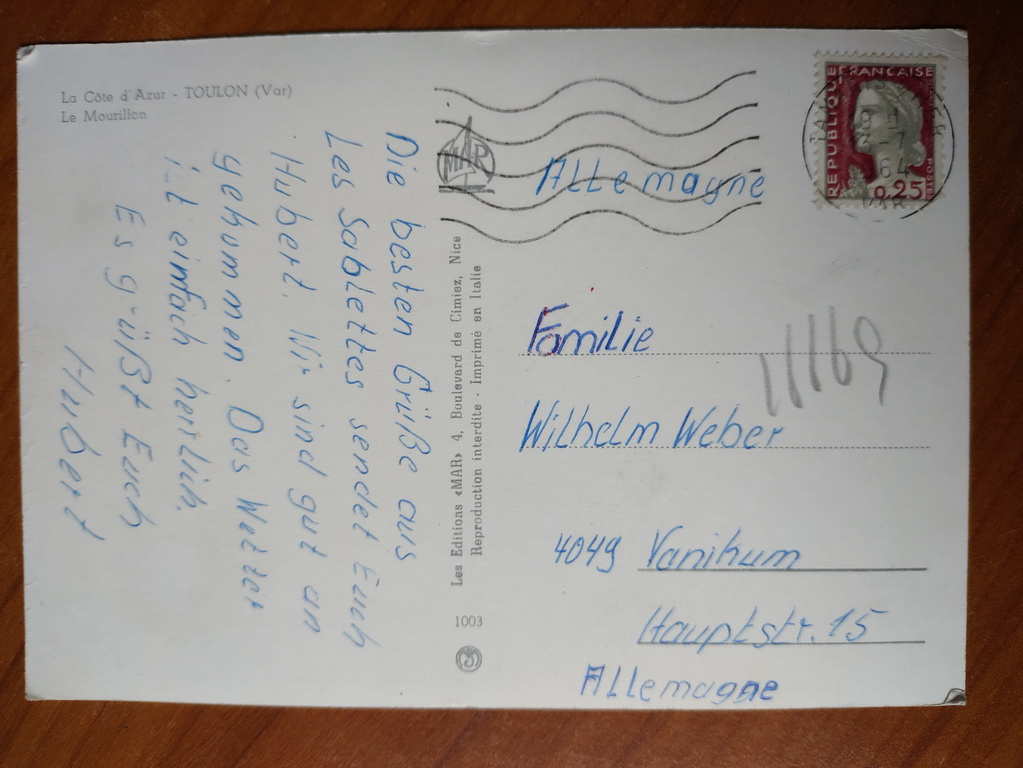 La Côte d'Azur - TOULON (Var)
Le Mourillon
Die besten Grüße aus
Les Sablettes sendet Euch
Hubert. Wir sind gut an
gekommen. Das Wetter
ist einfach herlich.
Es grüßt Euch
Hubert
Les Editions «MAR» 4, Boulevard de Cimiez, Nice
Reproduction interdite - Imprimé en Italie
1003
MAR
REPUBLIQUE FRANÇAISE
0,25
64
VAR
Allemagne
Familie
Wilhelm Weber
4049 Vanikum
Hauptstr. 15
Allemagne